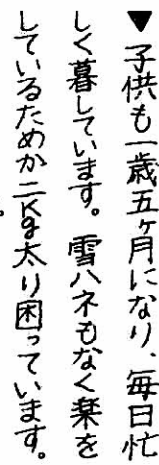 ▼子供も一歳五ヶ月になり、毎日忙
しく暮しています。雪ハネもなく楽を
しているためか二Kg太り困っています。